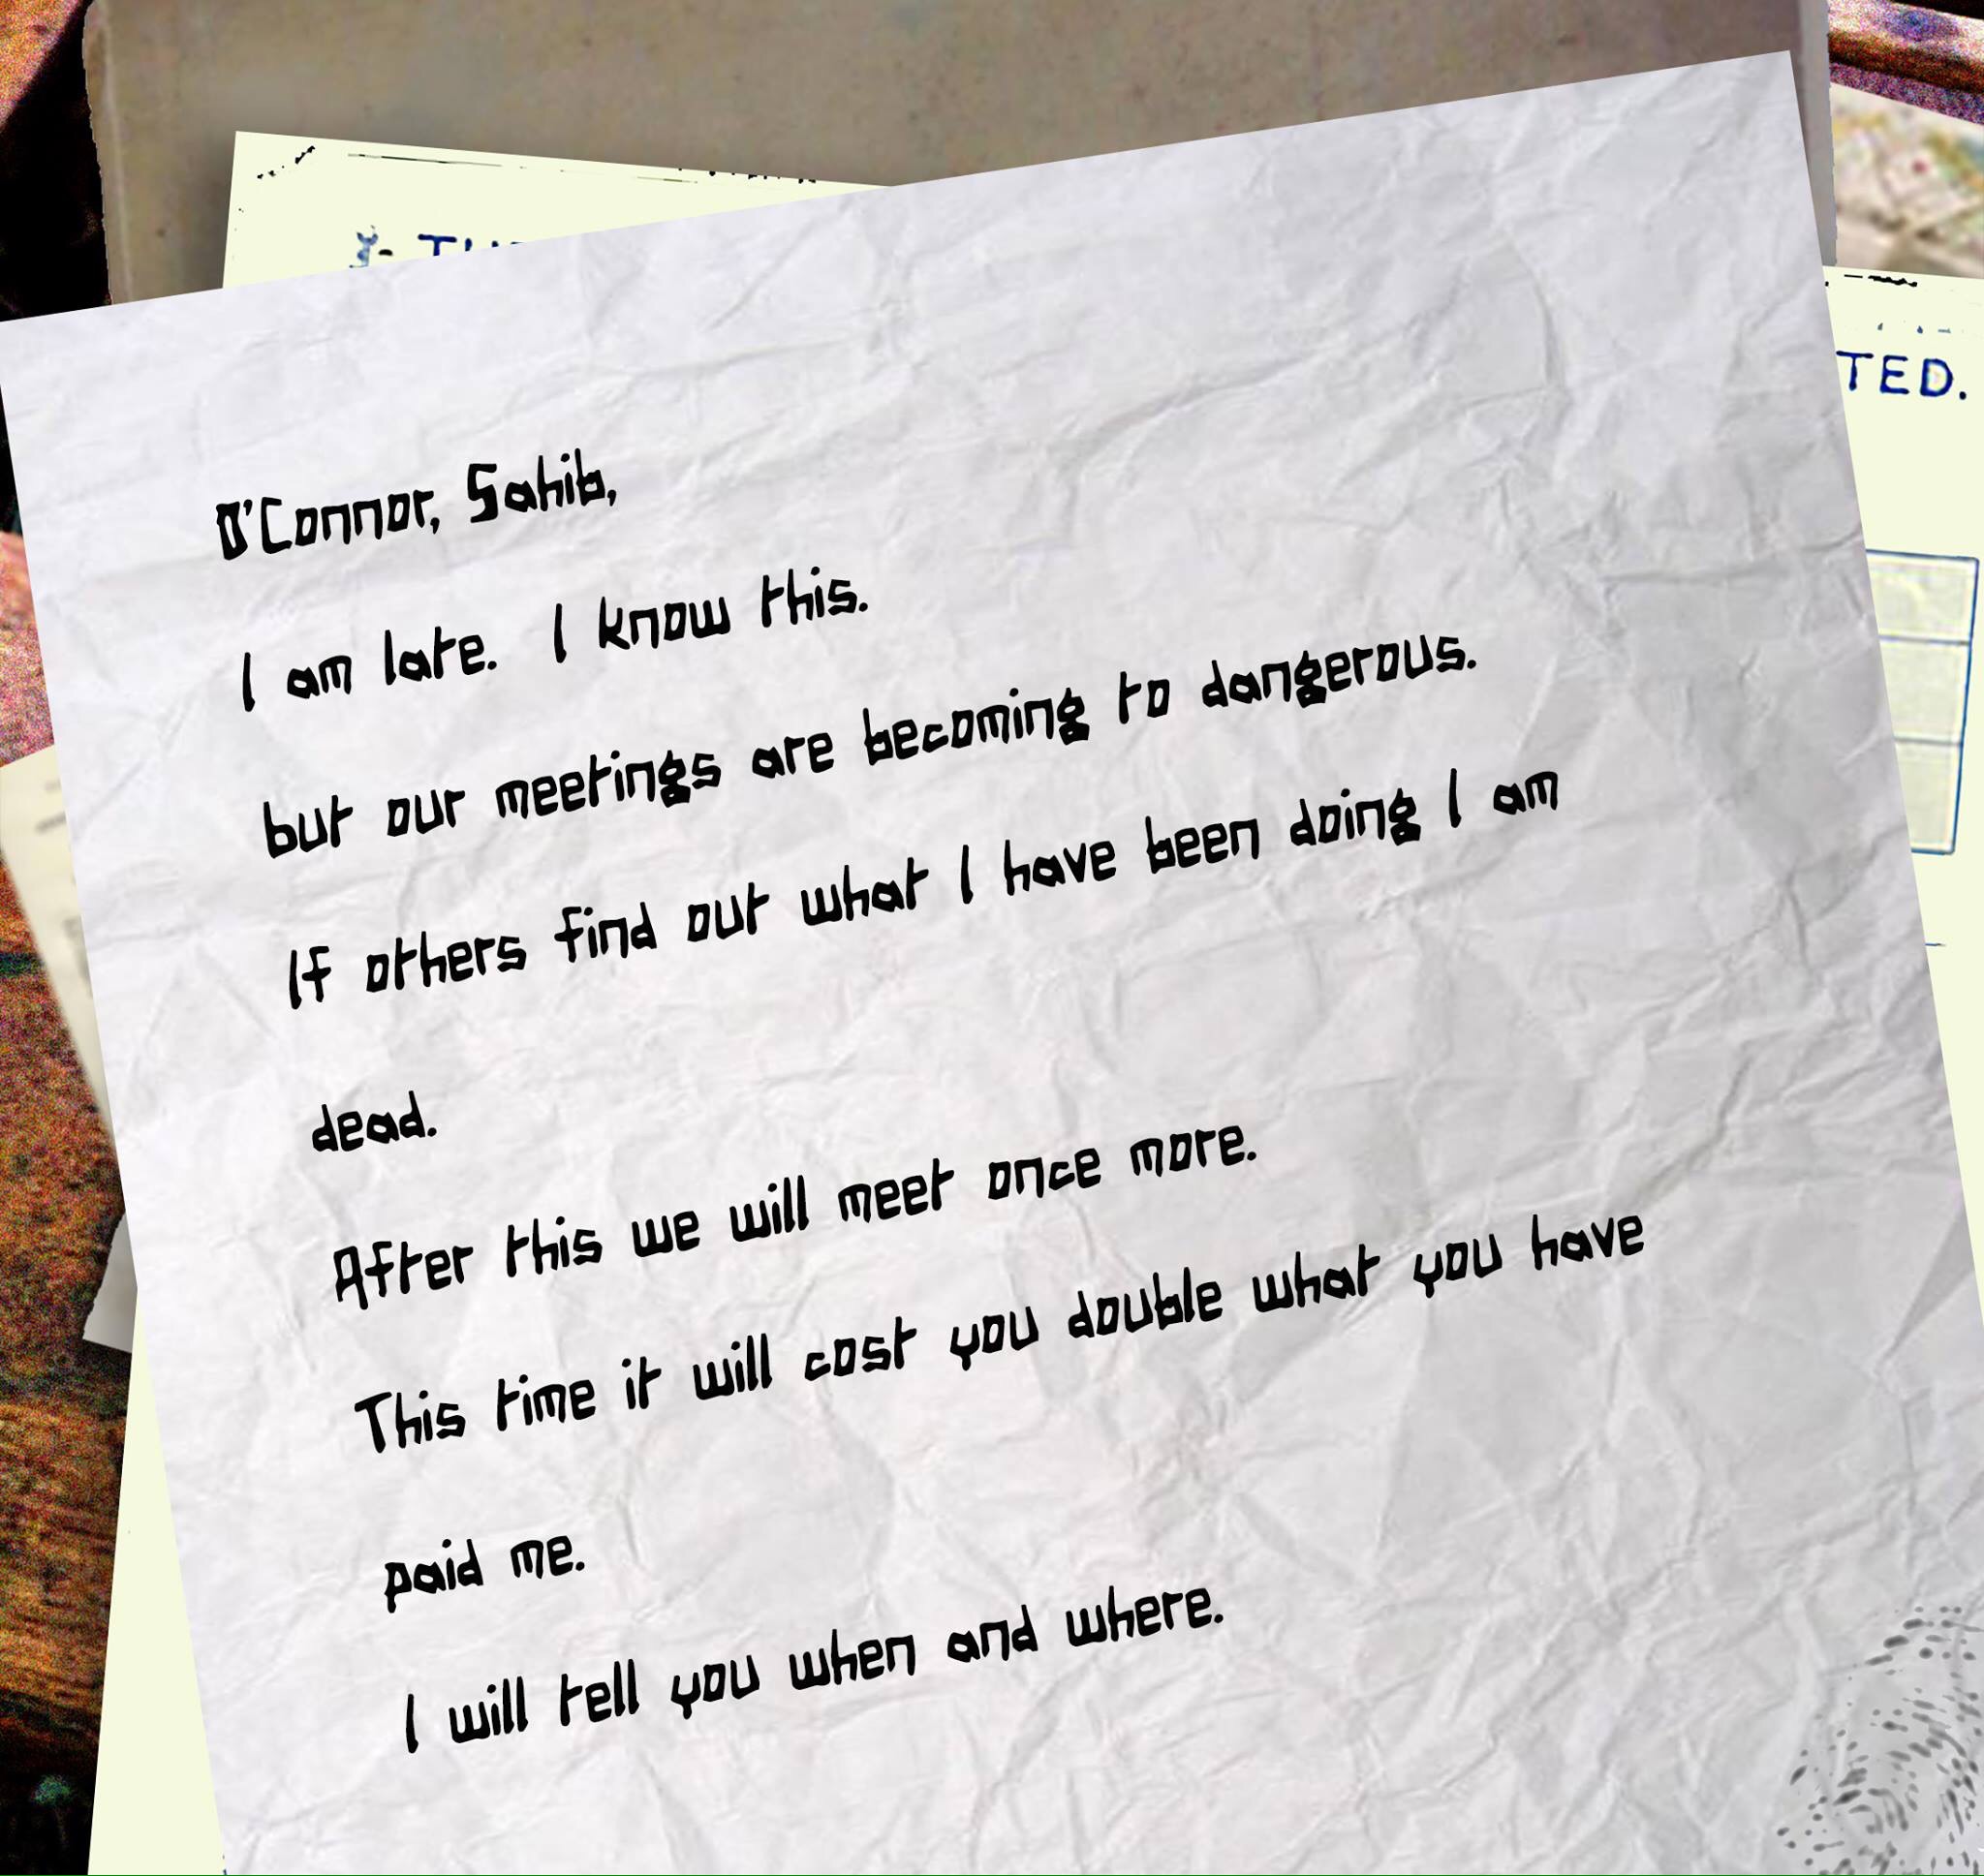 TED.
O'Connor, Sahib,
I am late. I know this.
but our meetings are becoming to dangerous.
If others find out what I have been doing I am
dead.
After this we will meet once more.
This time it will cost you double what you have
paid me.
I will tell you when and where.